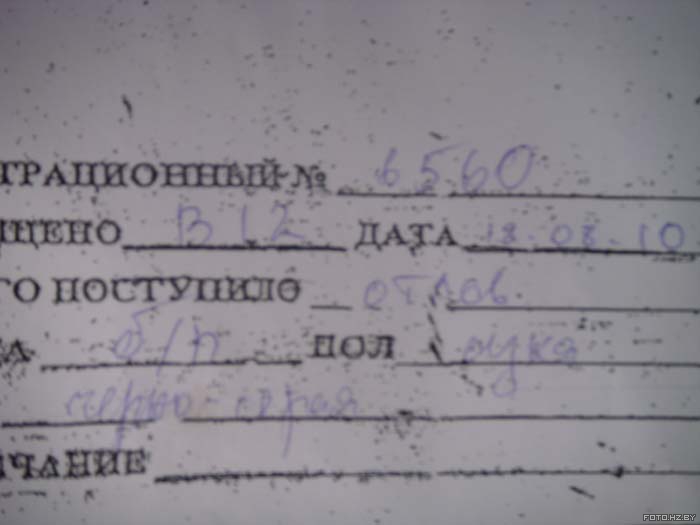 ТРАЦИОННЫЙ № 6560
ЩЕНО В 12 ДАТА 18.08.10
ГО ПОСТУПИЛО отлов
А б/п ПОЛ сука
черно-серая
ЧАНИЕ
FOTO.HZ.BY